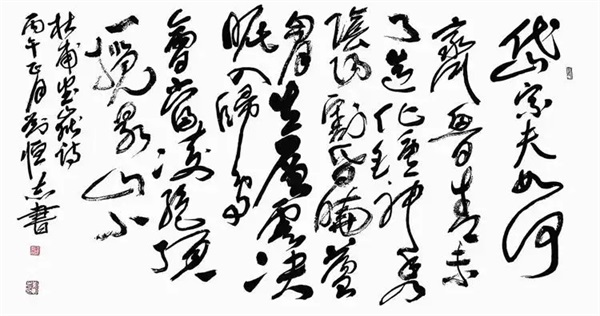 岱宗夫如何
齊魯青未
了造化鍾神秀
陰陽割昏曉蕩
胷生層雲決
眥入歸鳥
會當凌絕頂
一覽衆山小
杜甫望嶽詩
丙午正月劉恒志書